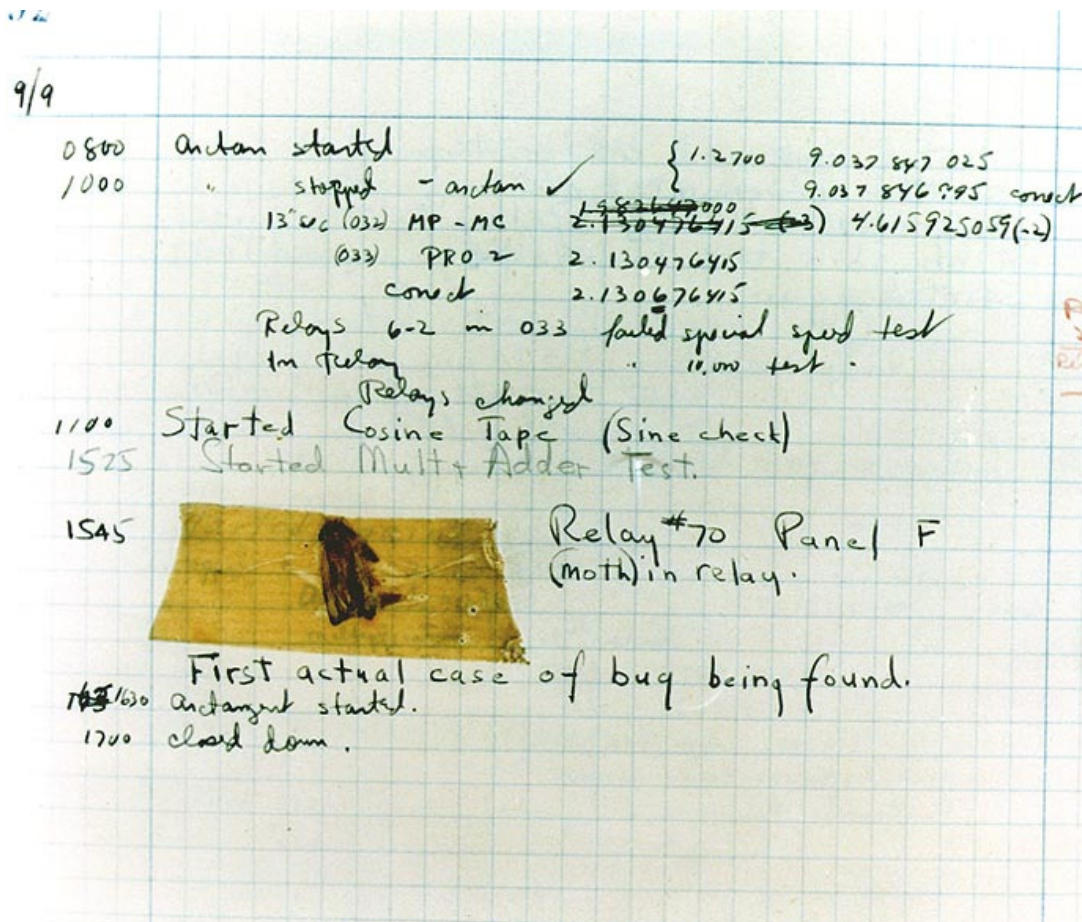 9/9
0800 arctan started { 1.2700 9.037 847 025
1000 " stopped - arctan ✓ { 9.037 846 795 correct
13"sec (032) MP - MC 2.130476415 (-3) 4.615925059(-2)
(033) PRO 2 2.130476415
correct 2.130676415
Relays 6-2 in 033 failed special speed test
In Relay " 10,000 test .
Relays changed
1100 Started Cosine Tape (Sine check)
1525 Started Mult + Adder Test.
1545 Relay #70 Panel F
(moth) in relay.
First actual case of bug being found.
1630 arctangent started.
1700 closed down .